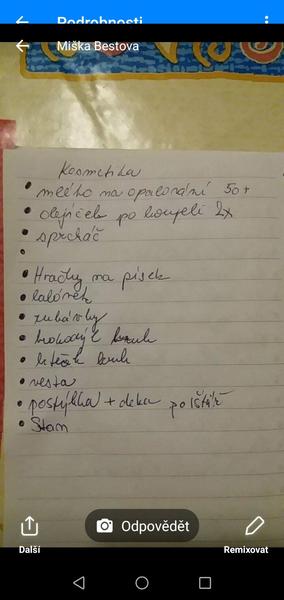 Podrobnosti
Miška Bestova
Kosmetika
mléko na opalování 50+
olejíček po koupeli 2x
sprcháč
Hračky na písek
balónek
rukávky
krokodýl kruh
kruh
vesta
postýlka + deka polštář
Stan
Odpovědět
Další
Remixovat